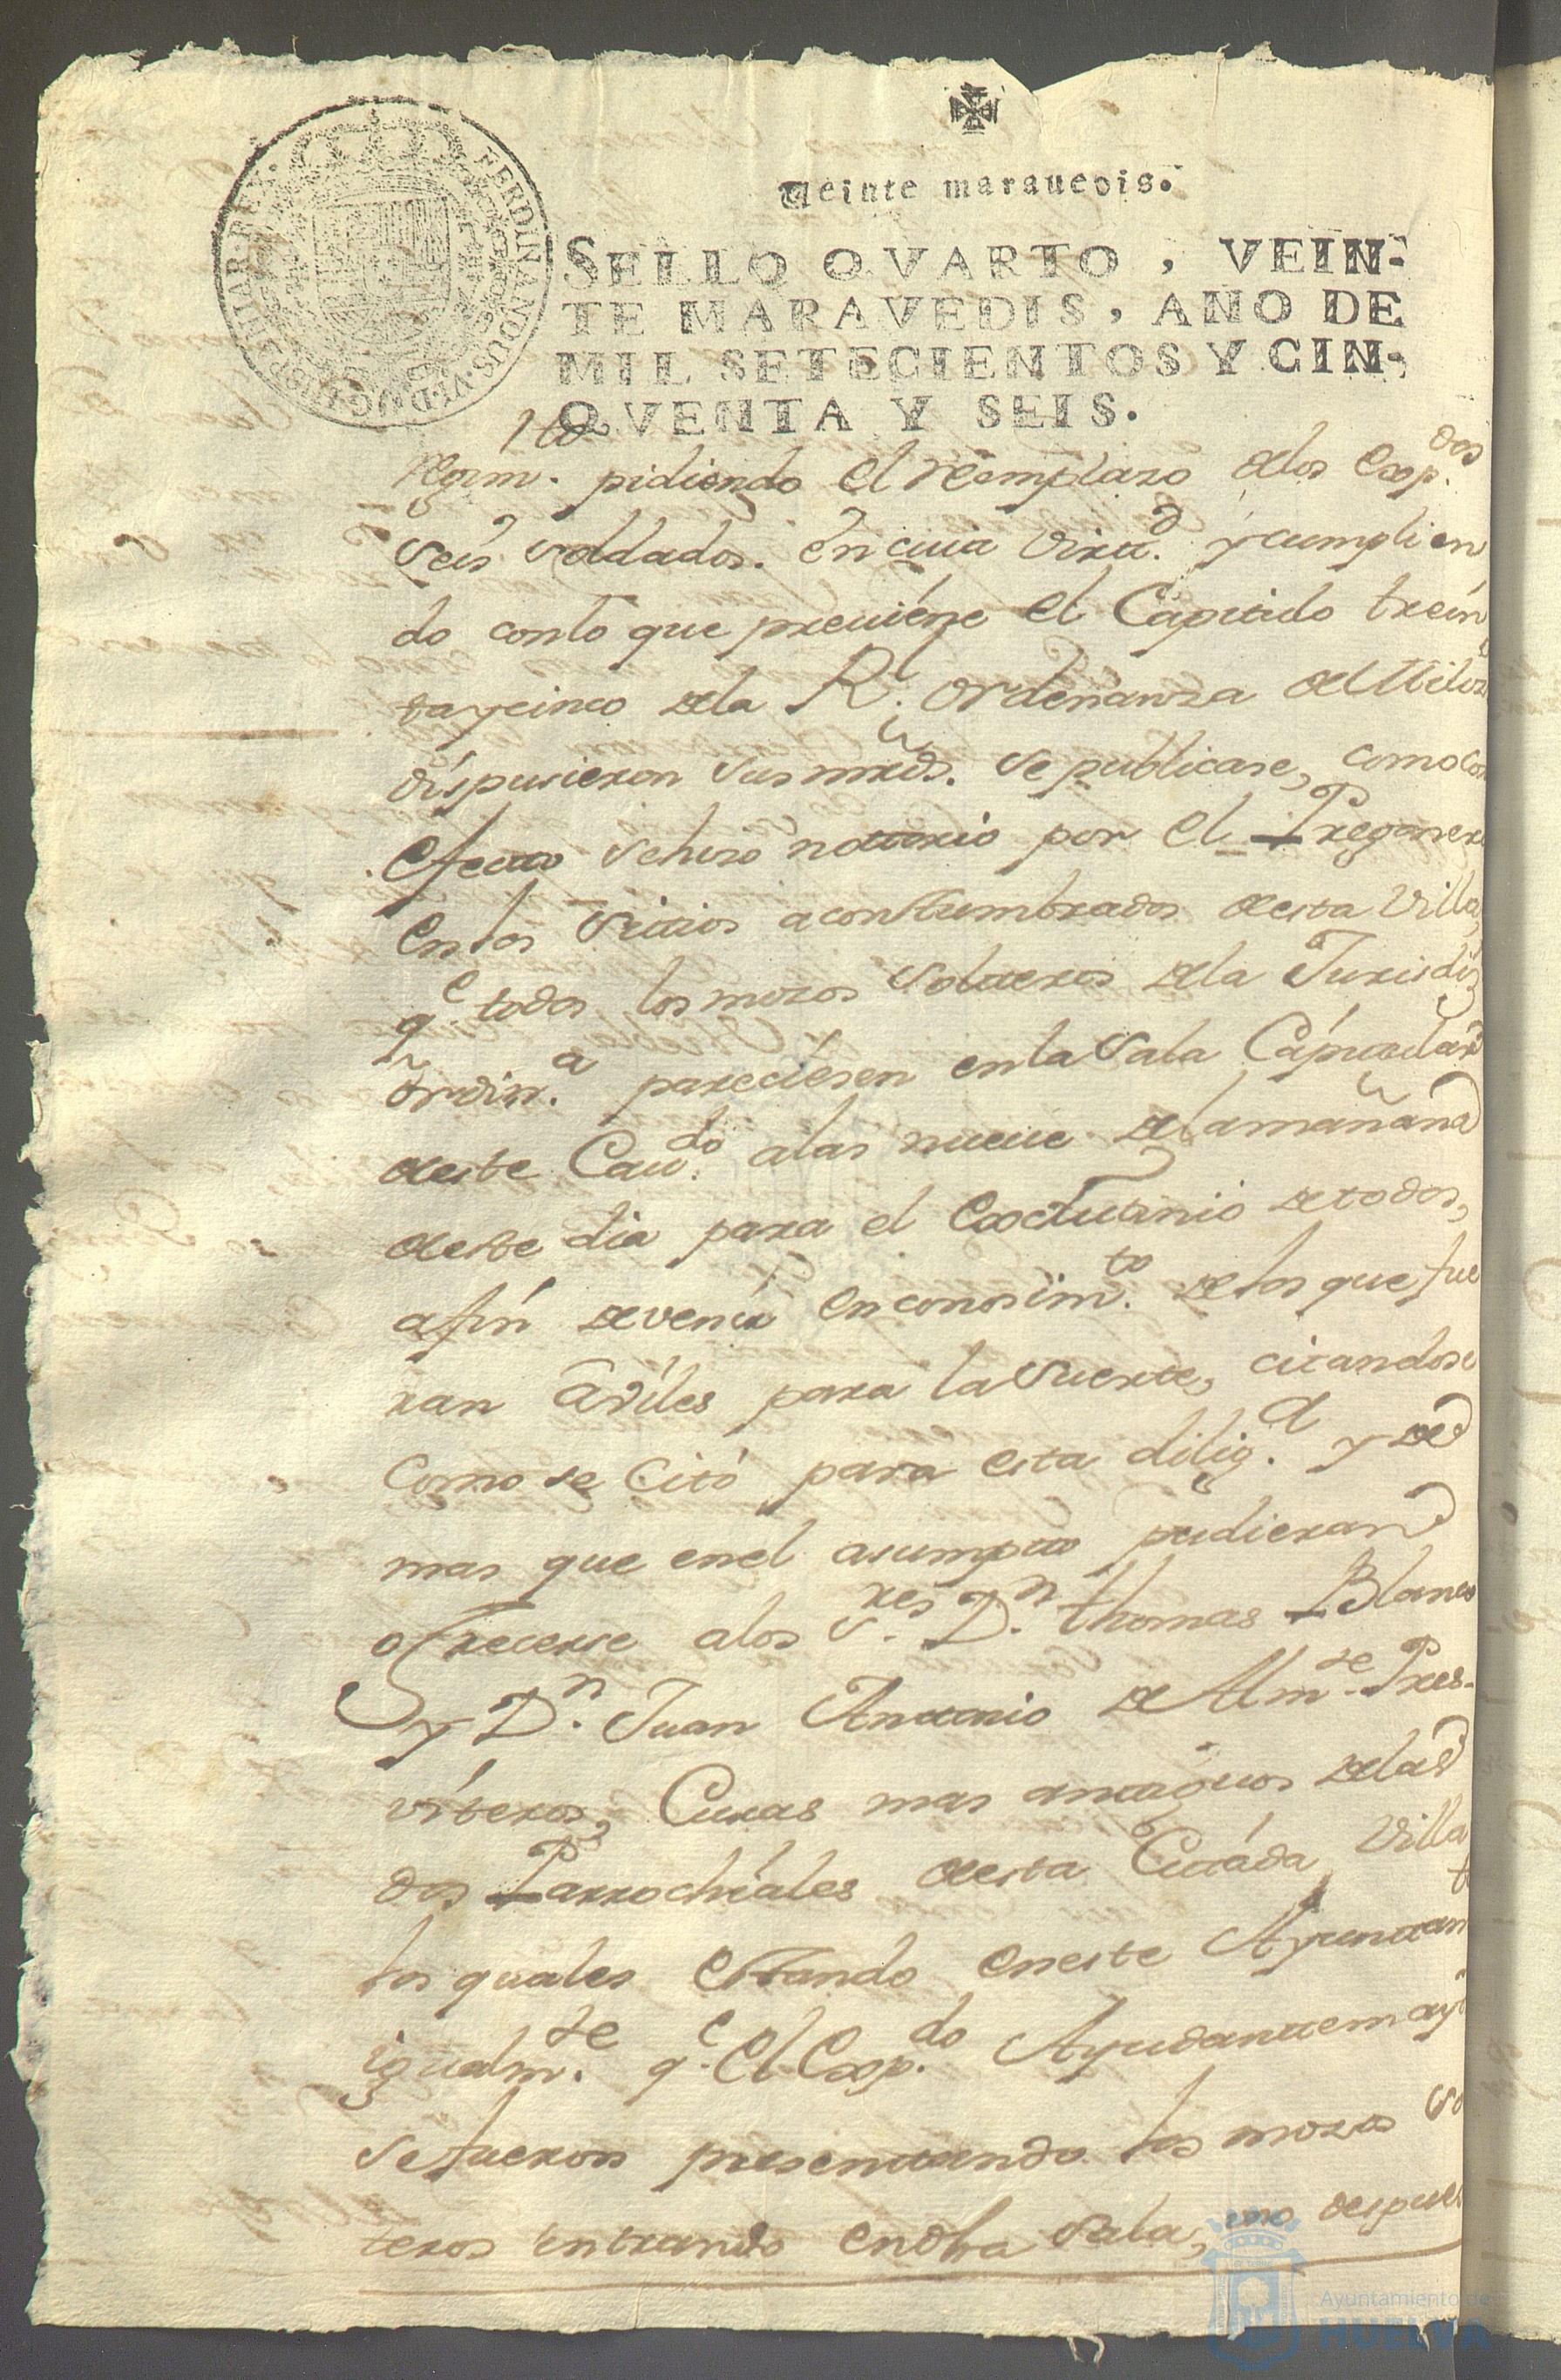 Veinte marauedis.
FERDINANDUS.VI.D.G. HISPANIAR.REX.
SELLO QVARTO, VEIN-
TE MARAVEDIS, AÑO DE
MIL SETECIENTOS Y CIN-
QVENTA Y SEIS.
regim.to pidiendo el reemplazo delos Exp.dos
Seis Soldados. en cuia Virtd. y cumplien
do conlo que preuiene el Capitulo trein
taycinco dela Rl. ordenanza de Miliz
dispusieron sus mrds. Se publicase, como con
efecto Sehizo notorio por el Pregonero
en los Sittios acostumbrados desta Villa,
q.e todos los mozos Solteros dela Jurisdiz
ordin.a pareciesen enla Sala Capitular
deste Cau.do alas nueue dela mañana
deste dia para el Exctutinio de todos,
afin de venir en conosim.to de los que fue
ran aviles para la Suerte, citandose
Como se Citó para esta dilig.a y de
mas que enel asumpto pudieran
ofrecerse alos S.res D.n thomas Blanco
y D.n Juan Antonio de Alm.te Pres-
víteros, Curas mas antiguos delas
dos Parrochiales desta Citada Villa
los quales estando eneste Ayuntam
igualm.te q.e el Exp.do Ayudante may
Sefueron presentando los mozos So
teros entrando en dha Sala, uno despues
Ayuntamiento de
HUELVA